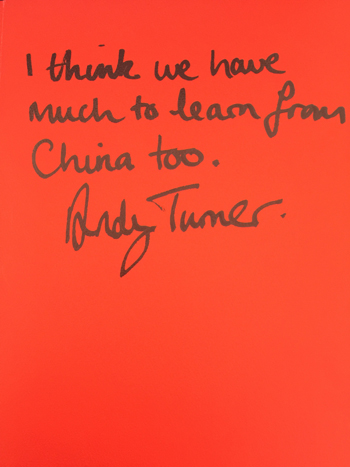 I think we have
much to learn from
China too.
Andy Turner.